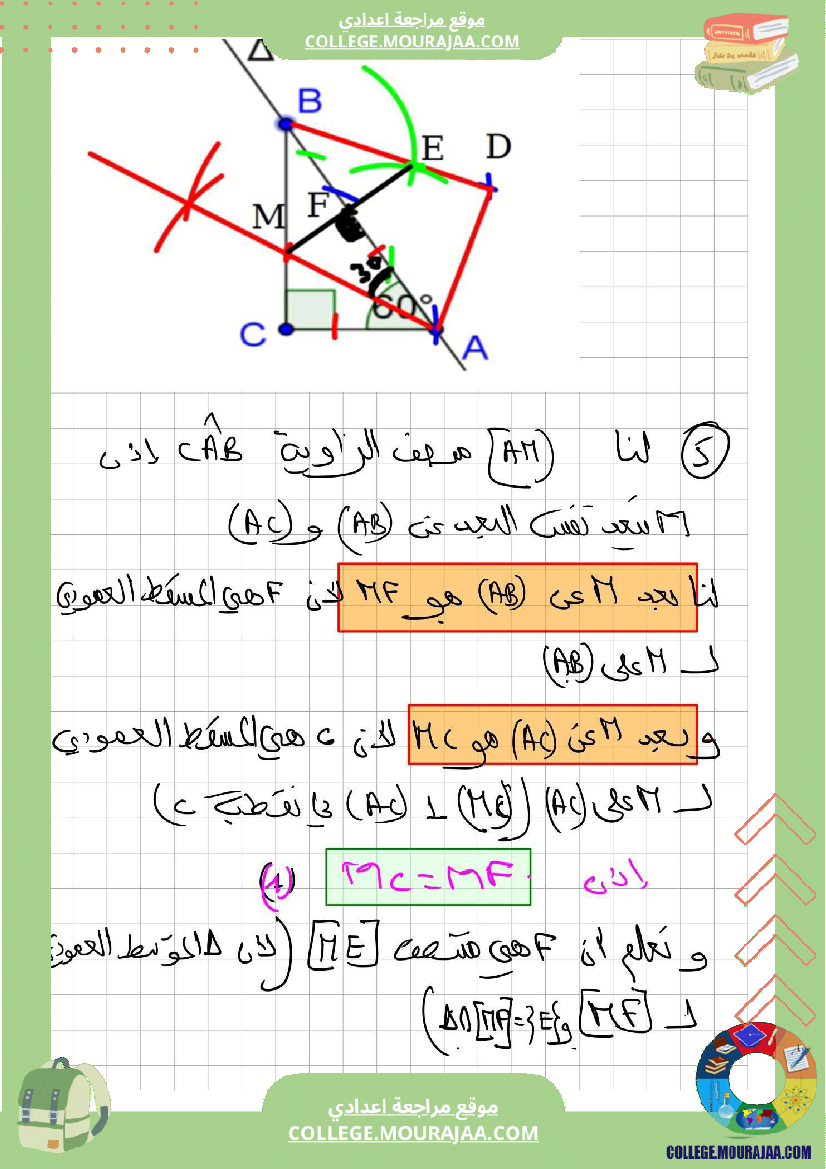 موقع مراجعة اعدادي
COLLEGE.MOURAJAA.COM
Δ
B
E
D
M
F
30
60°
C
A
5 لنا [AM) منصف الزاوية CÂB إذن
M تبعد نفس البعد عن (AB) و (AC)
لنا بعد M عن (AB) هو MF لأن F هي المسقط العمودي
لـ M على (AB)
و بعد M عن (AC) هو MC لأن C هي المسقط العمودي
لـ M على (AC) ((MC) ⊥ (AC) في نقطة C)
إذن MC = MF (1)
و نعلم أن F هي منتصف [ME] (لأن Δ الموسط العمودي
لـ [MF] و Δ∩[MF]={E})
موقع مراجعة اعدادي
COLLEGE.MOURAJAA.COM
COLLEGE.MOURAJAA.COM